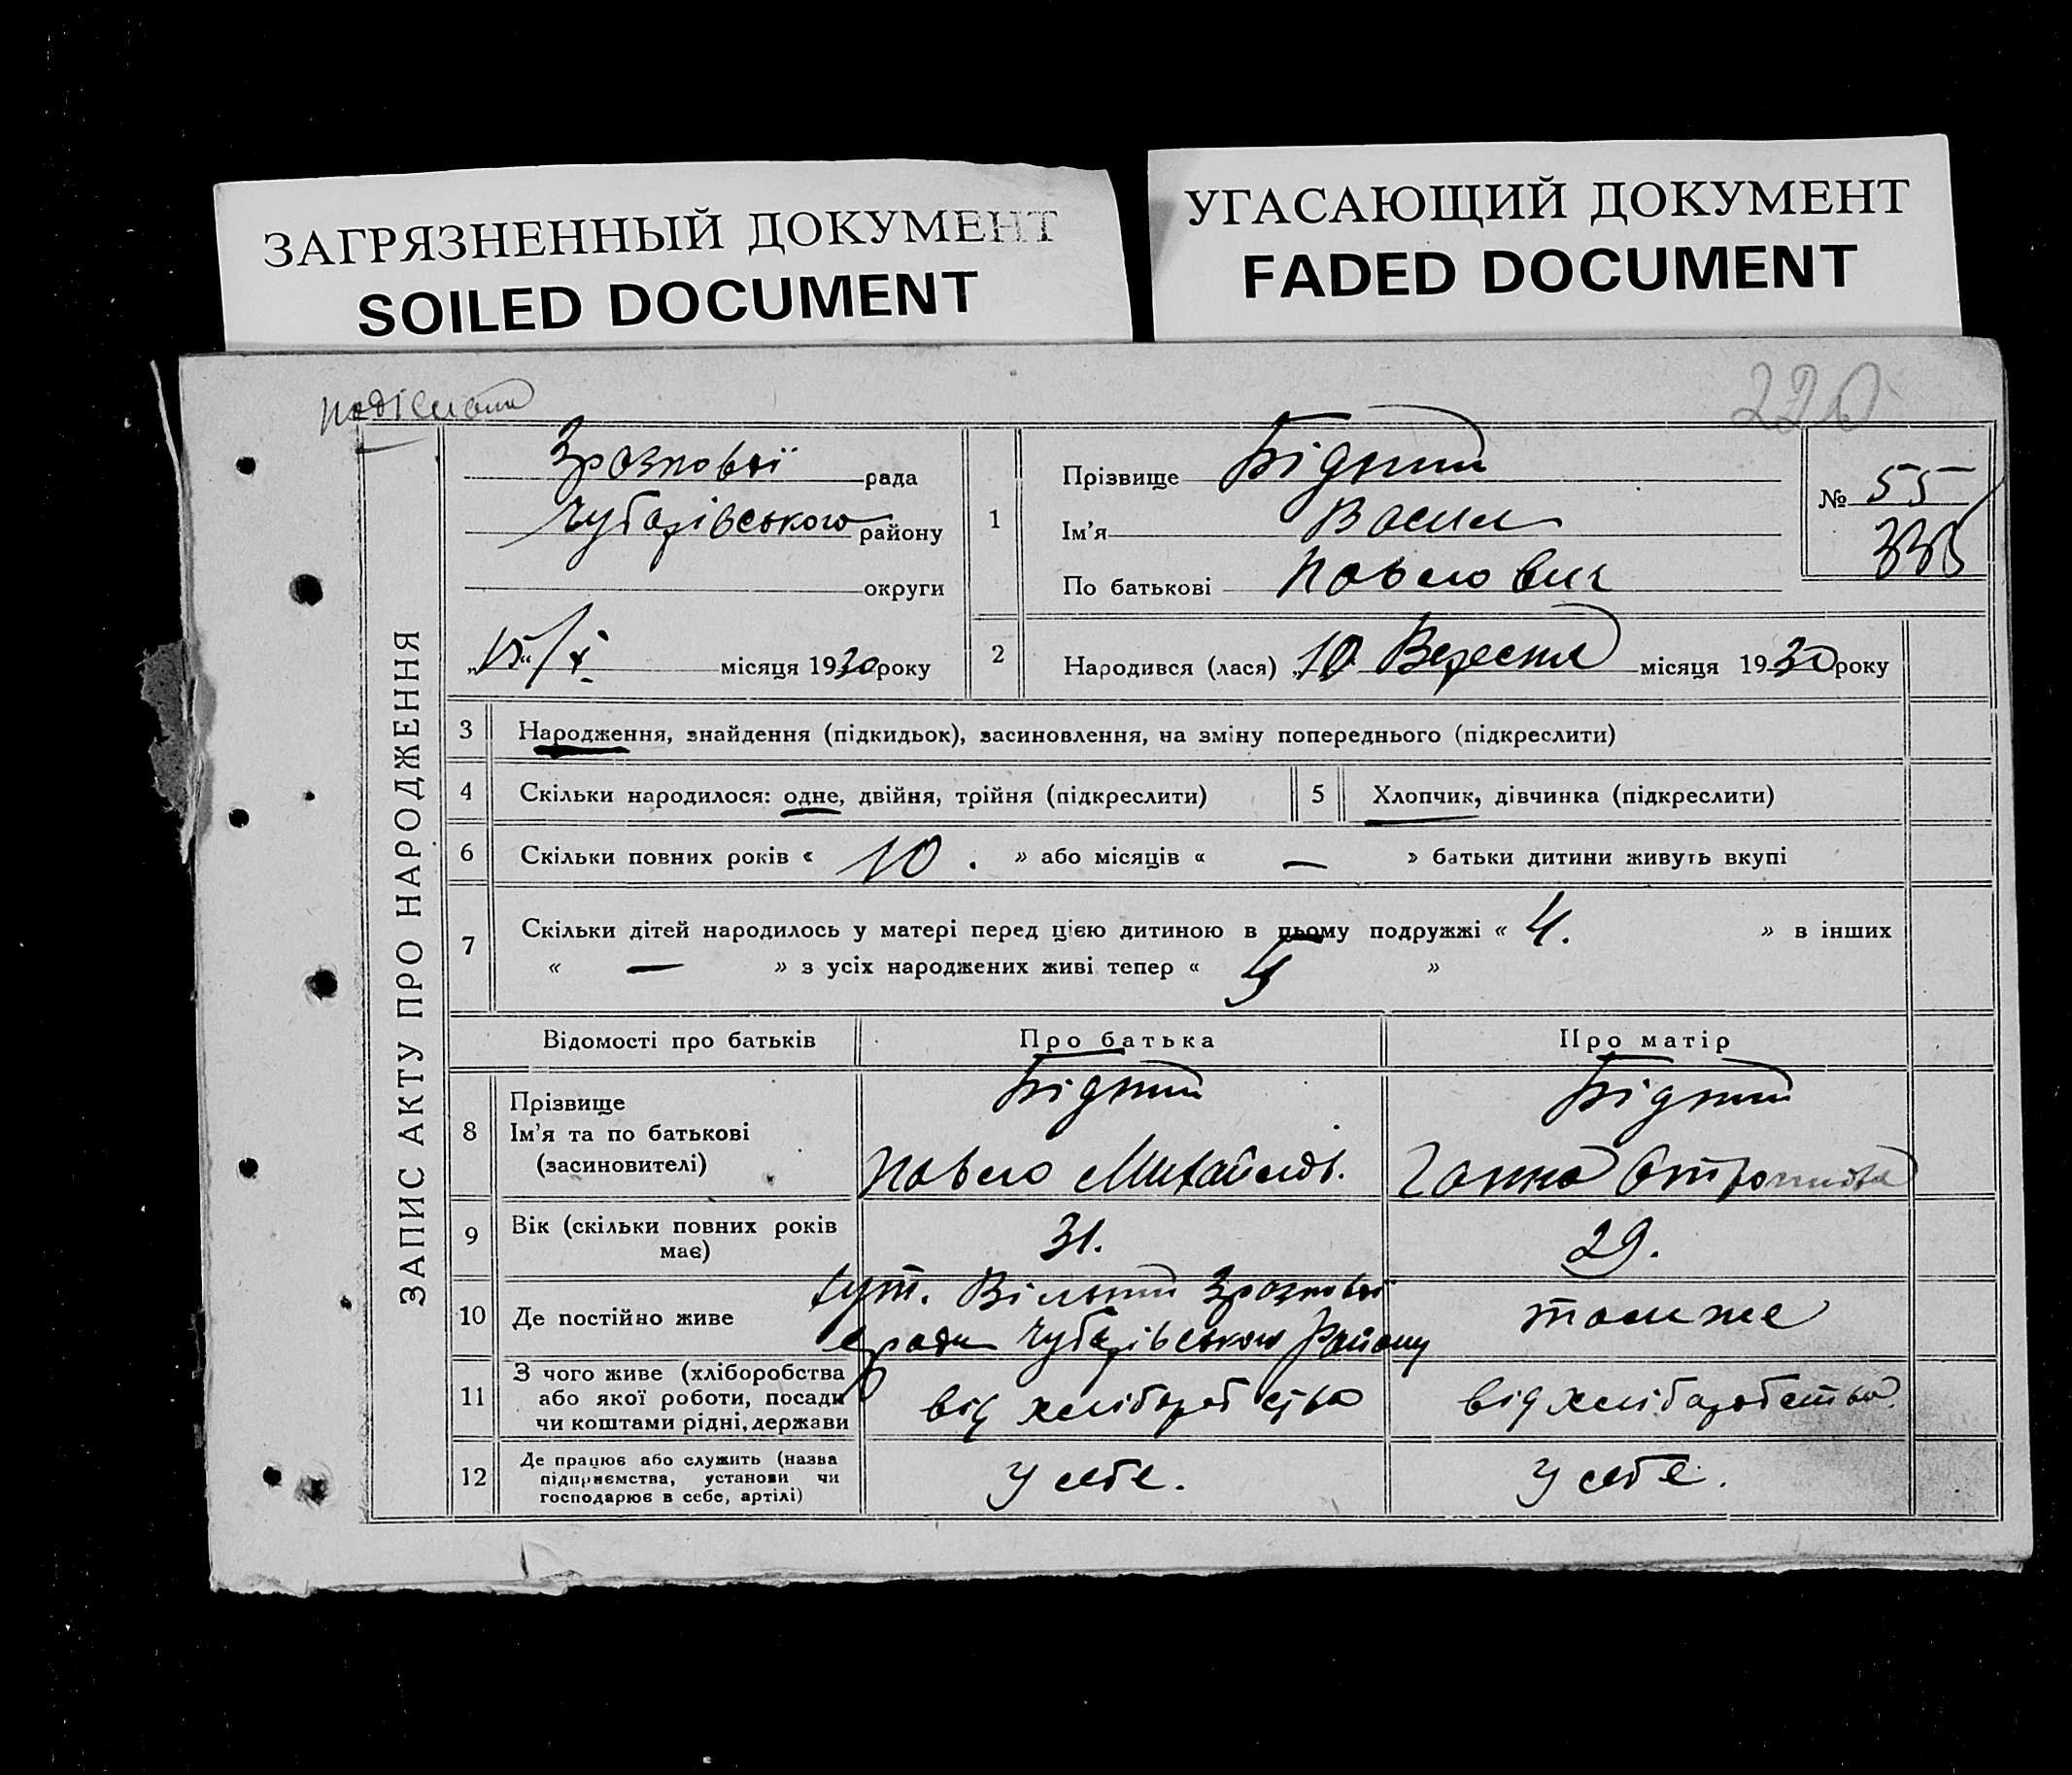 ЗАГРЯЗНЕННЫЙ ДОКУМЕНТ
SOILED DOCUMENT
УГАСАЮЩИЙ ДОКУМЕНТ
FADED DOCUMENT
220
ЗАПИС АКТУ ПРО НАРОДЖЕННЯ
Зразкової рада
Чубарівського району
округи
„15“/X місяця 1930 року
1
Прізвище Бідний
Ім'я Васил
По батькові Павлович
№ 55
2
Народився (лася) „10 Вересня місяця 1930 року
3 Народження, знайдення (підкидьок), засиновлення, на зміну попереднього (підкреслити)
4 Скільки народилося: одне, двійня, трійня (підкреслити)
5 Хлопчик, дівчинка (підкреслити)
6 Скільки повних років « 10. » або місяців « — » батьки дитини живуть вкупі
7 Скільки дітей народилось у матері перед цією дитиною в цьому подружжі « 4. » в інших
« — » з усіх народжених живі тепер « 5 »
Відомості про батьків
Про батька
Про матір
8 Прізвище
Ім'я та по батькові
(засиновителі)
Бідний
Павло Михайлов.
Бідний
Ганна
9 Вік (скільки повних років
має)
31.
29.
10 Де постійно живе
хут. Вільний Зразкової
с/ради Чубарівського Району
також
11 З чого живе (хліборобства
або якої роботи, посади
чи коштами рідні, держави
від хліборобства
від хліборобства
12 Де працює або служить (назва
підприємства, установи чи
господарює в себе, артілі)
У себе.
У себе.